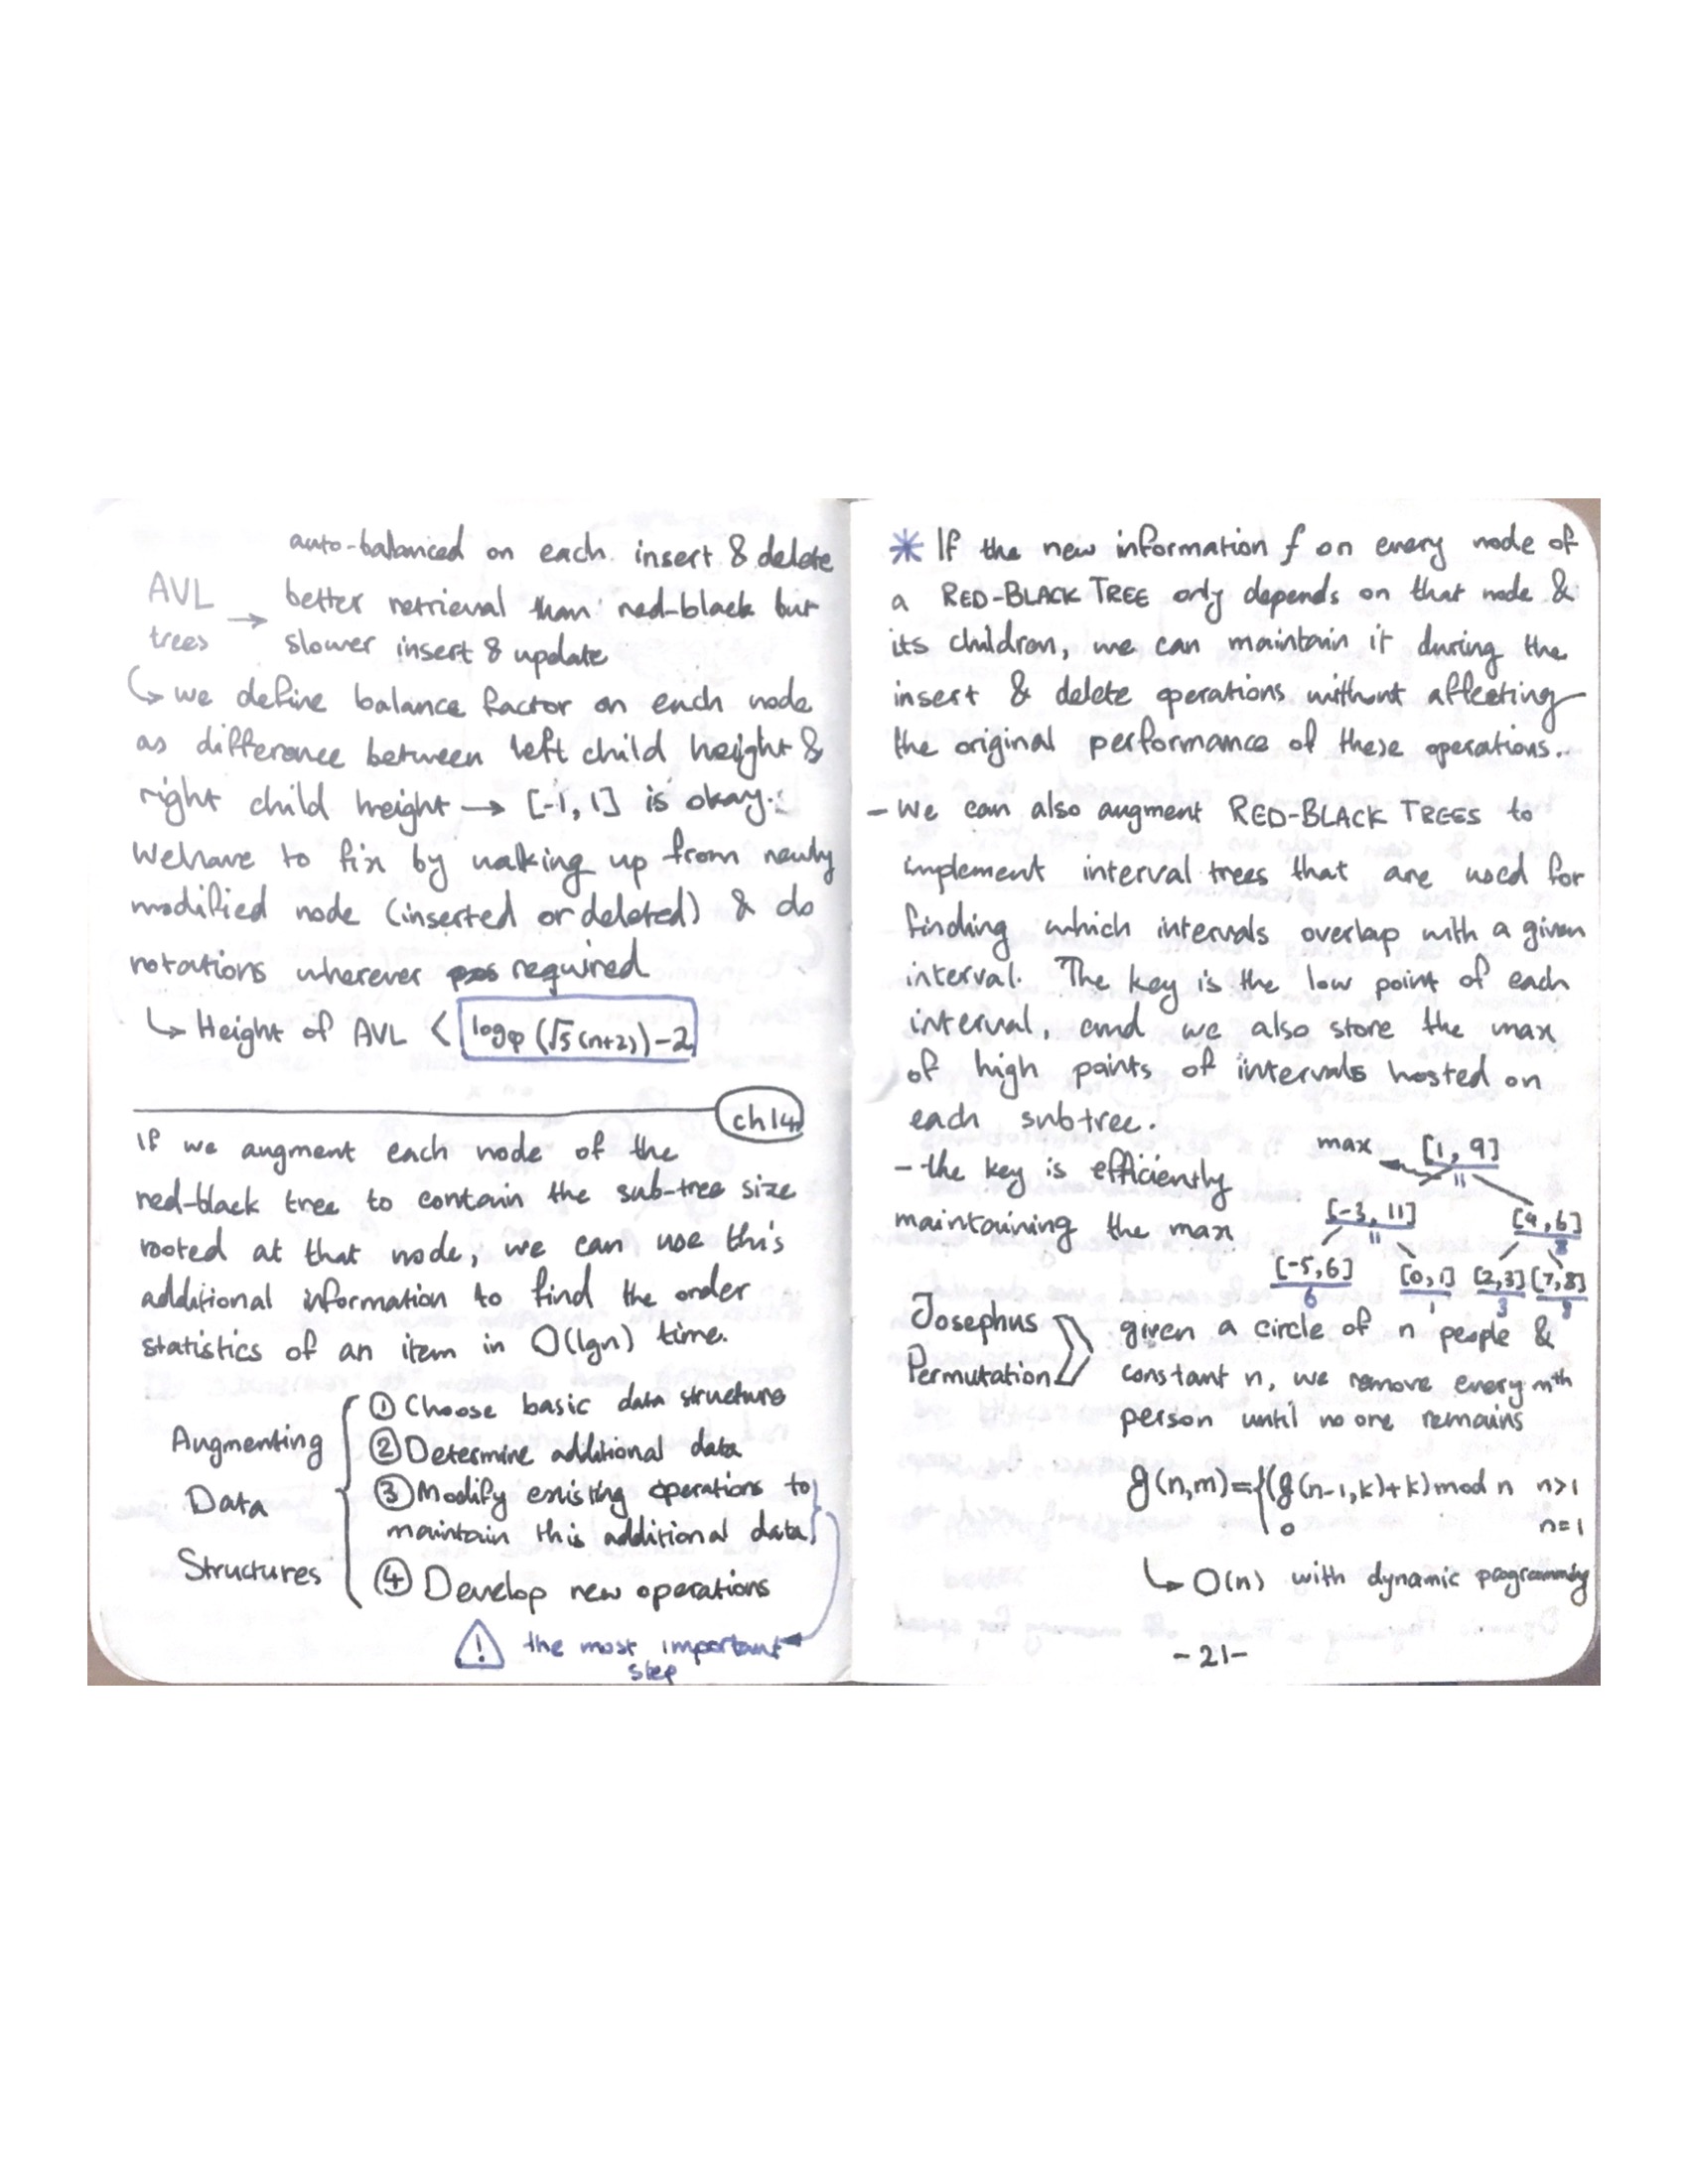 auto-balanced on each insert & delete
AVL trees → better retrieval than red-black but
slower insert & update
↳ we define balance factor on each node
as difference between left child height &
right child height → [-1, 1] is okay.
We have to fix by walking up from newly
modified node (inserted or deleted) & do
rotations wherever required
↳ Height of AVL < logφ (√5 (n+2)) - 2
ch14
If we augment each node of the
red-black tree to contain the sub-tree size
rooted at that node, we can use this
additional information to find the order
statistics of an item in O(lgn) time.
Augmenting Data Structures
① Choose basic data structure
② Determine additional data
③ Modify existing operations to
maintain this additional data
④ Develop new operations
! the most important
step
* If the new information f on every node of
a RED-BLACK TREE only depends on that node &
its children, we can maintain it during the
insert & delete operations without affecting
the original performance of these operations.
- We can also augment RED-BLACK TREES to
implement interval trees that are used for
finding which intervals overlap with a given
interval. The key is the low point of each
interval, and we also store the max
of high points of intervals hosted on
each subtree.
- the key is efficiently
maintaining the max
max ← [1, 9]
11
[-3, 11] [4, 6]
11 8
[-5, 6] [0, 1] [2, 3] [7, 8]
6 1 3 8
Josephus Permutation
given a circle of n people &
constant n, we remove every mth
person until no one remains
g(n,m) = { (g(n-1,k)+k) mod n n>1
0 n=1
↳ O(n) with dynamic programming
-21-